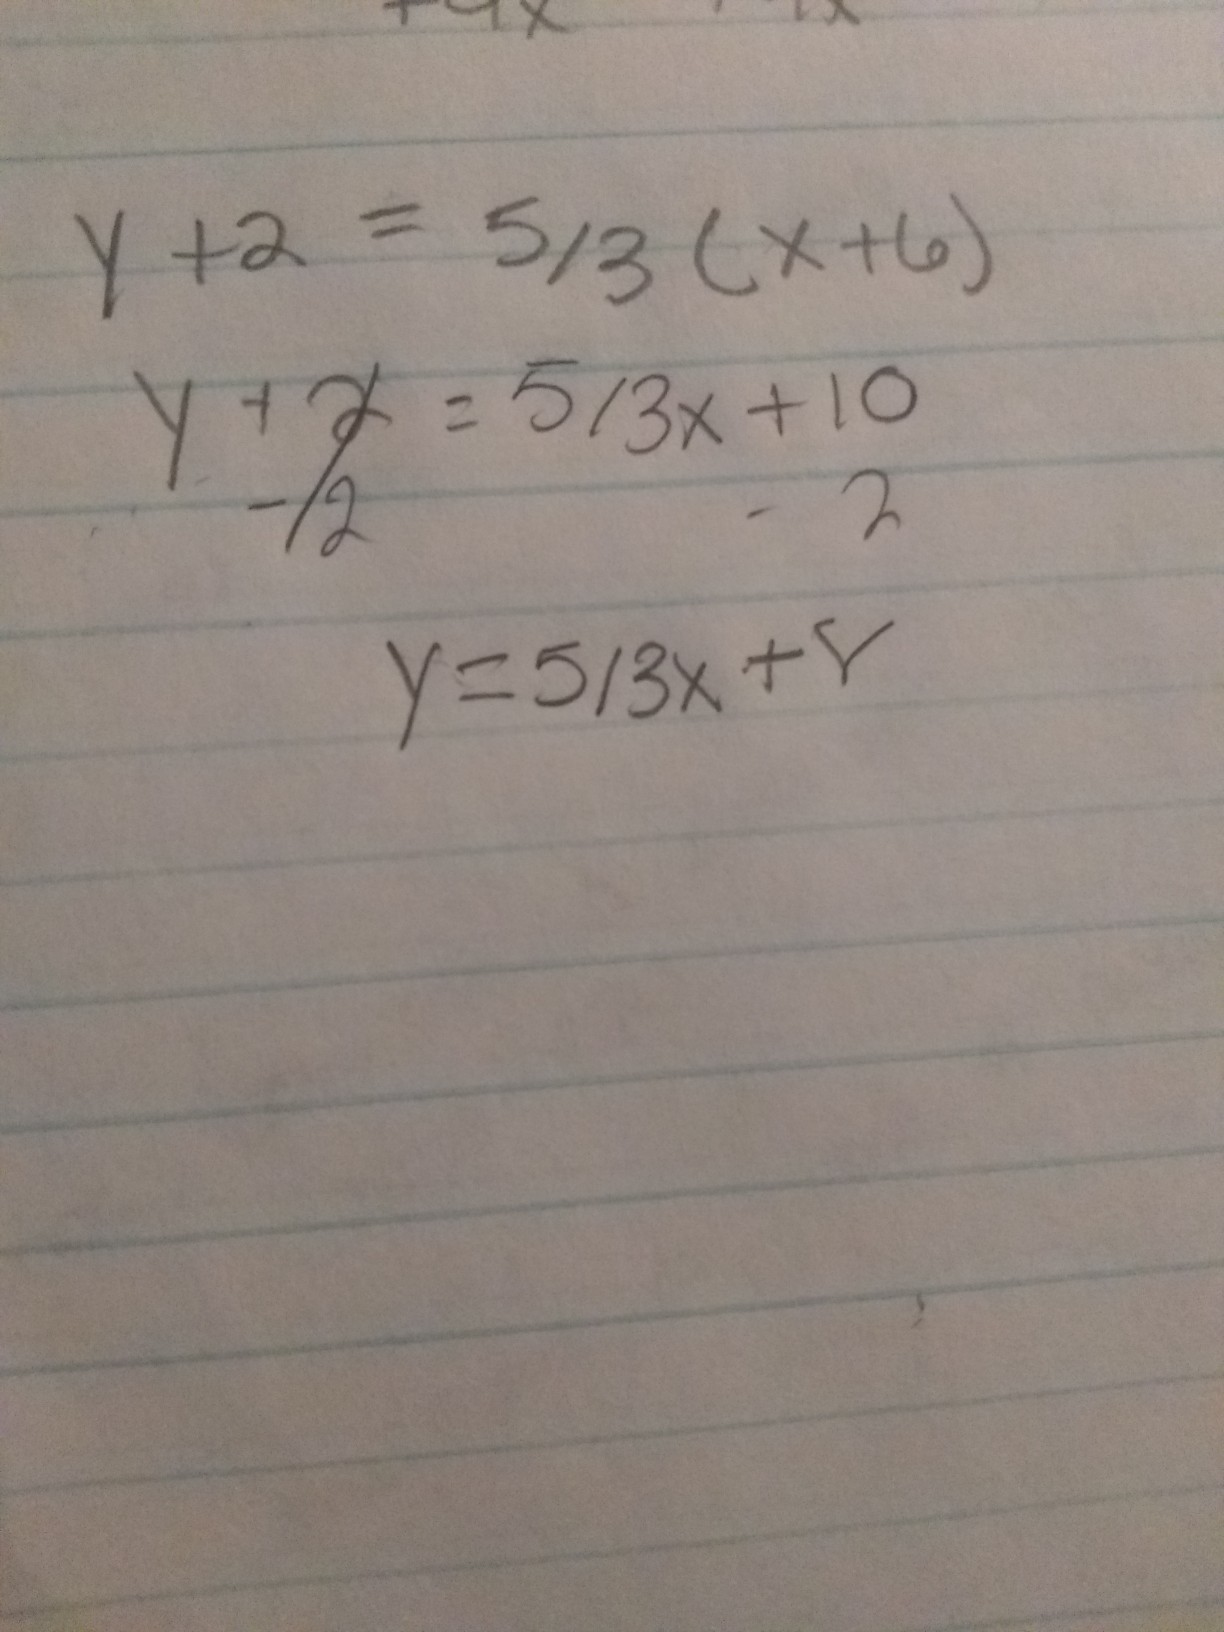 +4x +4x
y+2 = 5/3 (x+6)
y + 2 = 5/3x +10
-2 - 2
y=5/3x +8